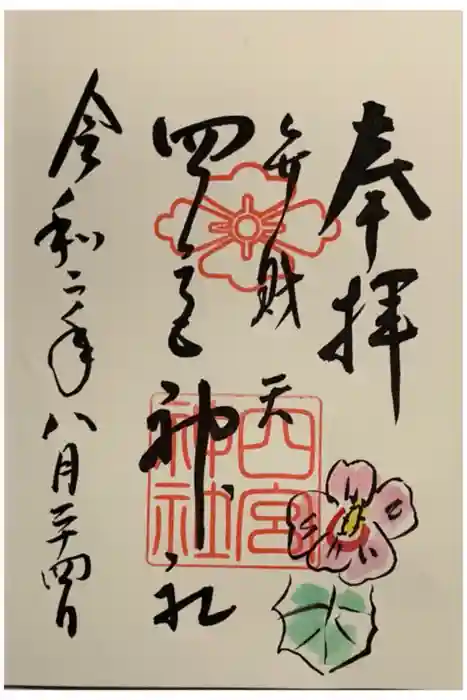 奉拝
弁財天
四宮神社
四宮神社
令和二年八月二十四日